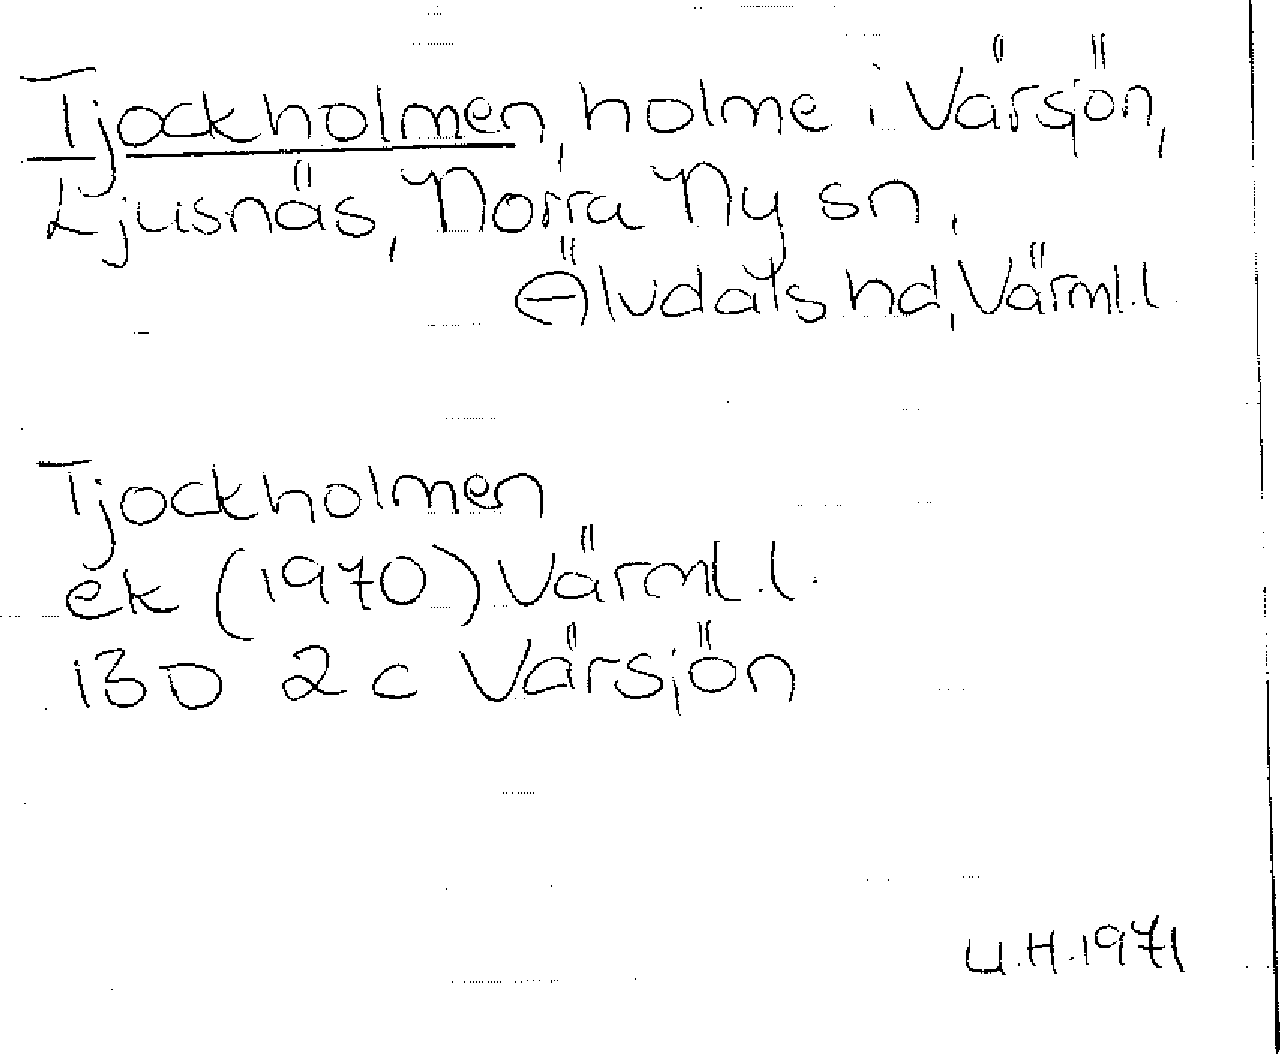 Tjockholmen, holme i Värsjön,
Ljusnäs, Norra Ny sn,
Älvdals hd, Värml.l.
Tjockholmen
ek (1970) Värml.l.
13D 2c Värsjön
U.H.1971